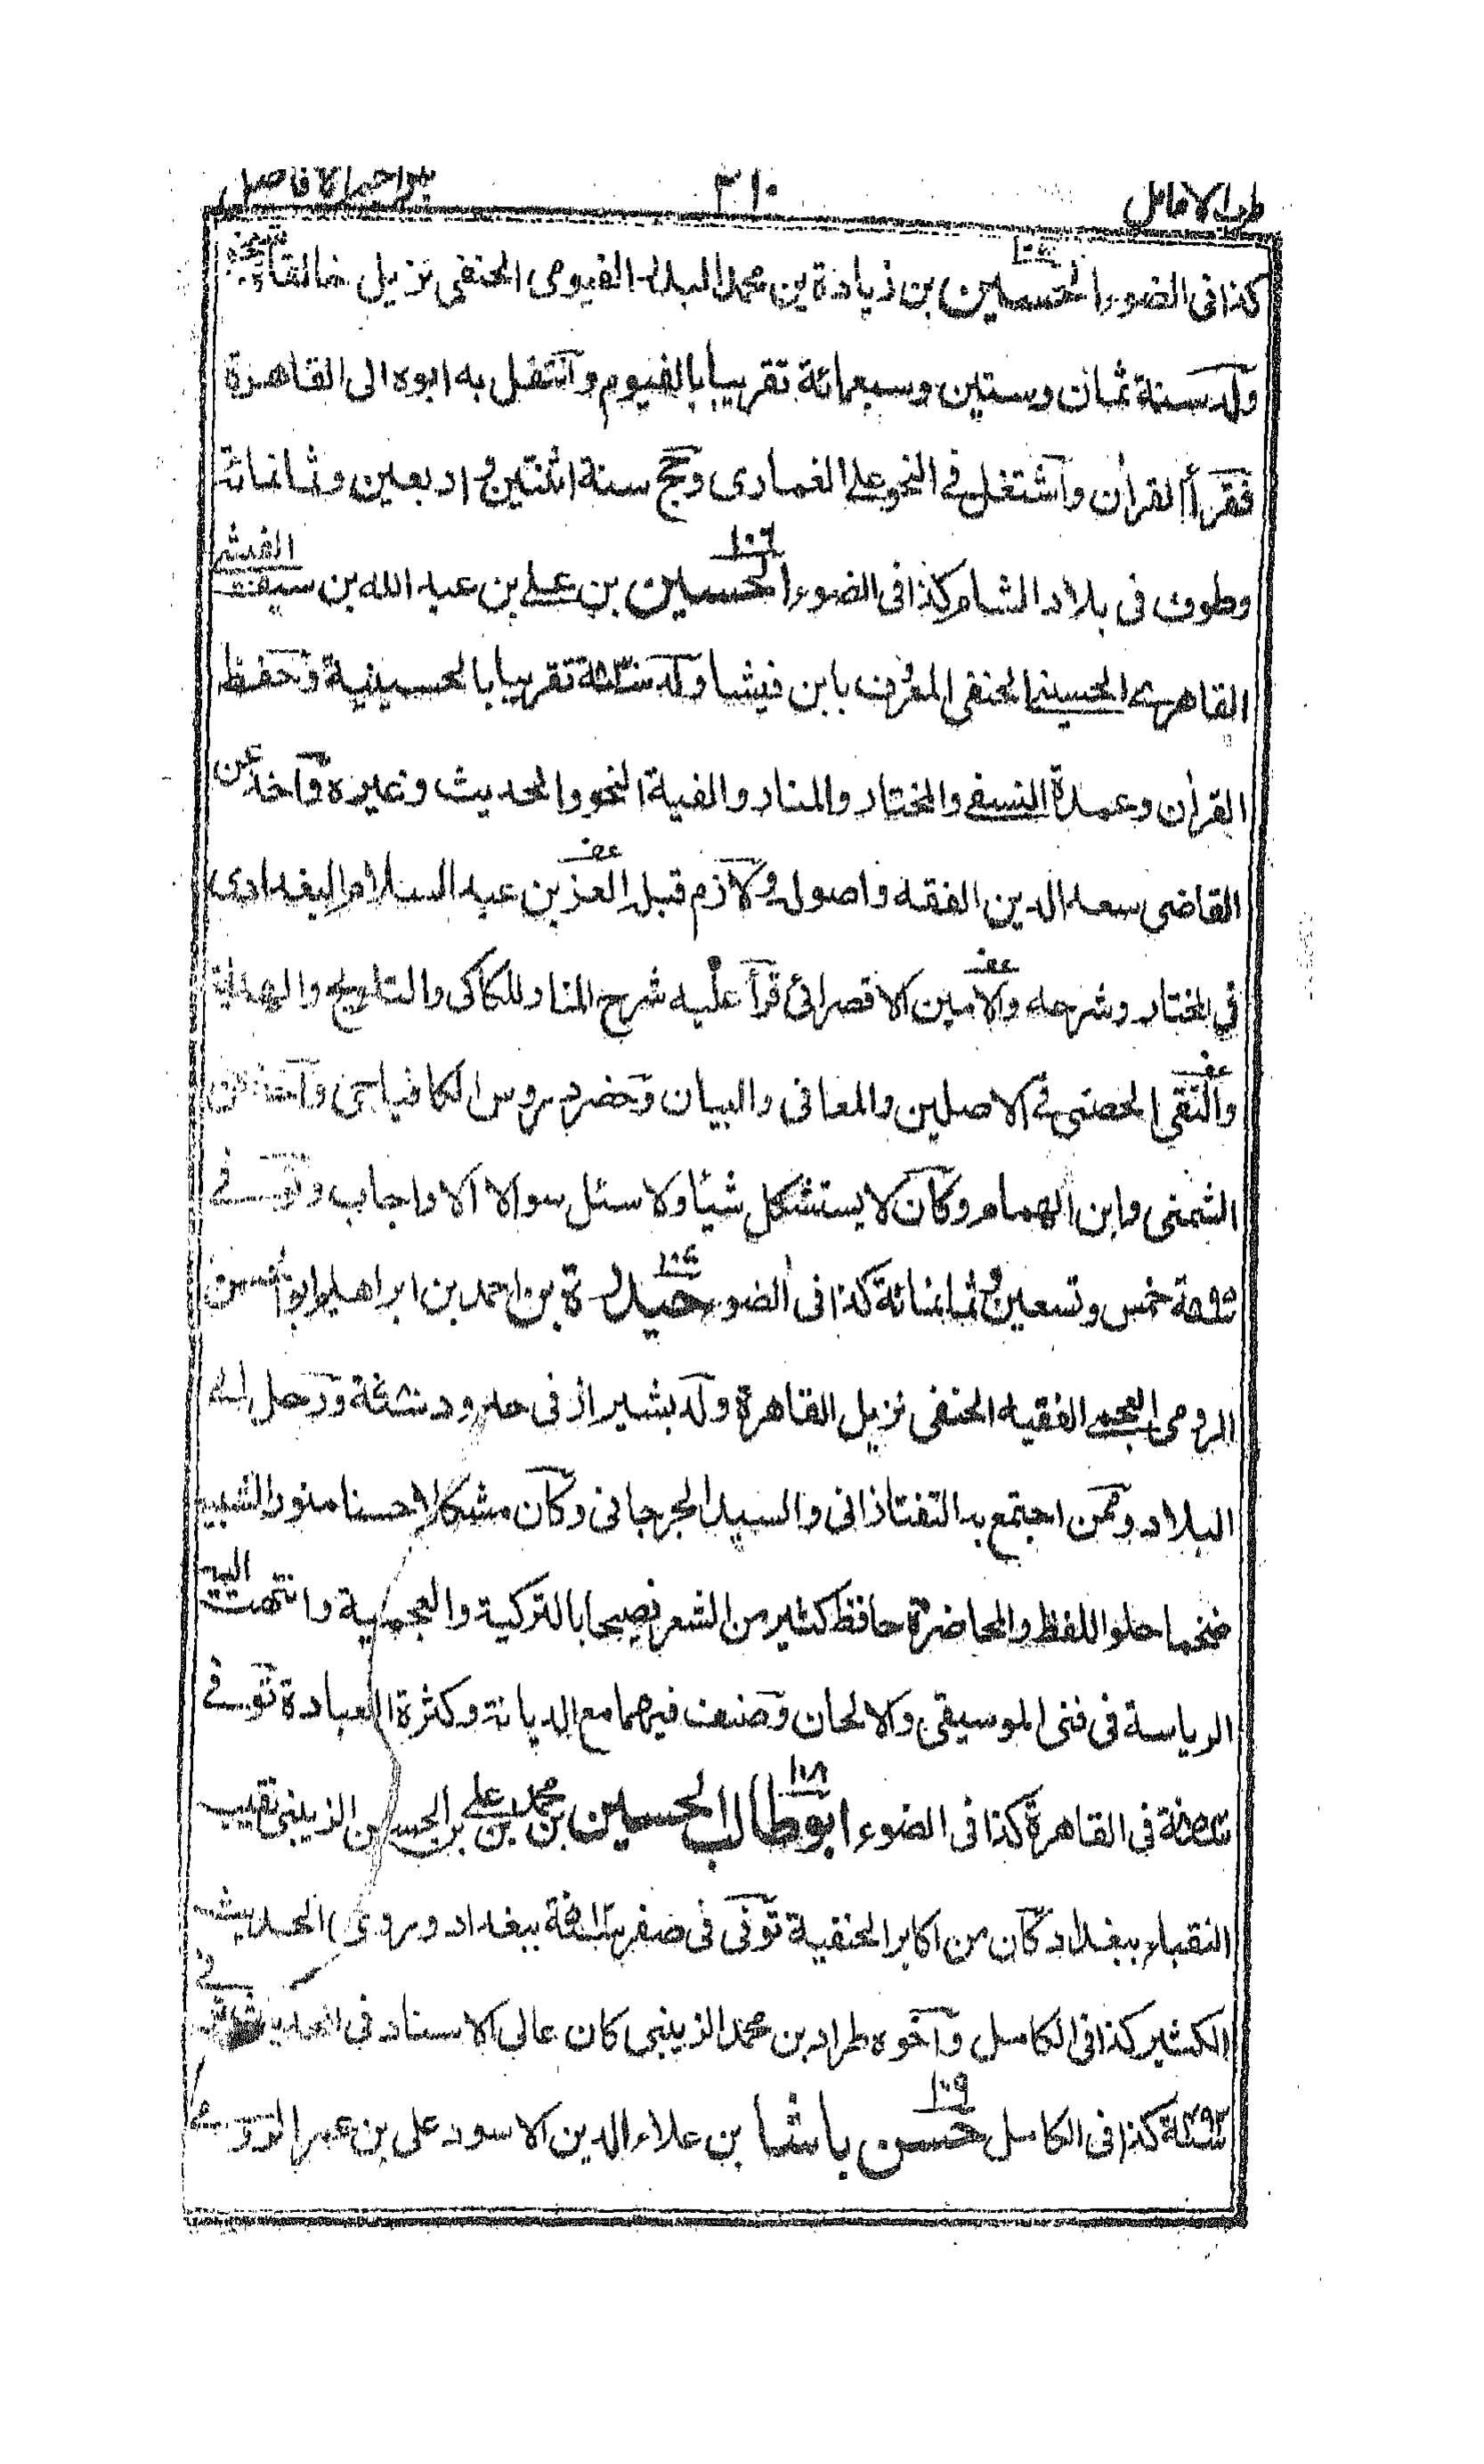 طرب الاماثل ٣١٠ بتراجم الافاضل
كذا فى الضوء الحسين بن زيادة بن محمد البدر الفيومى الحنفى نزيل خانقاه
ولد سنة ثمان وستين وسبعمائة تقريبا بالفيوم وانتقل به ابوه الى القاهرة
فقرأ القرأن واشتغل فى النحو على الغمارى وحج سنة اثنتين و اربعين وثمانمائة
وطوف فى بلاد الشام كذا فى الضوء ١٠٦ الحسين بن على بن عبد الله بن سيف الفيشى
القاهرى الحسينى الحنفى المعروف بابن فيشا ولد سنة ٨٣٠ تقريبا بالحسينية وحفظ
القرأن وعمدة النسفى والمختار والمنار والفية النحو والحديث وغيره واخذ عن
القاضى سعد الدين الفقه واصوله ولازم قبله العز بن عبد السلام البغدادى
فى المختار وشرحه والامين الاقصرائى قرأ عليه شرح المنار للكاكى والتلويح والهداية
والتقى الحصنى فى الاصلين والمعانى والبيان وحضر دروس الكافياجى واخذ عن
الشمنى وابن الهمام وكان لا يستشكل شيئا ولا سئل سوالا الا واجاب وتوفى
سنة ٨٩٥ خمس وتسعين و ثمانمائة كذا فى الضوء حيدرة بن احمد بن ابراهيم ابو الحسن
الرومى العجمى الفقيه الحنفى نزيل القاهرة ولد بشيراز فى حدود سنة ورحل الى
البلاد وممن اجتمع به التفتازانى والسيد الجرجانى وكان مشكلا حسنا منور الشيبة
ضخما حلو اللفظ والمحاضرة حافظ كثير من الشعر فصيحا بالتركية والعجمية وانتهت اليه
الرياسة فى فنى الموسيقى والالحان وصنف فيهما مع الديانة وكثرة العبادة توفى
سنة فى القاهرة كذا فى الضوء ١٠٨ ابو طالب الحسين بن محمد بن على بن الحسن الزينبى نقيب
النقباء ببغداد كان من اكابر الحنفية توفى فى صفر سنة ٥١٢ ببغداد وروى الحديث
الكثير كذا فى الكامل واخوه طراد بن محمد الزينبى كان عالى الاسناد فى الحديث توفى
سنة كذا فى الكامل ١٠٩ حسن باشا بن علاء الدين الاسود على بن عمر الرومى